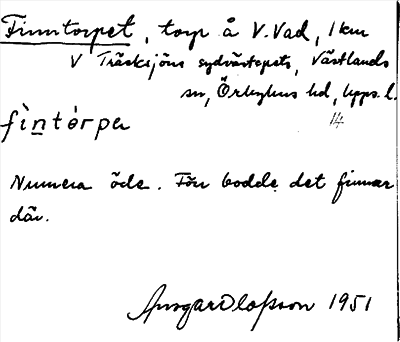 Finntorpet, torp å V. Vad, 1 km
V Träsksjöns sydvästspets, Västlands
sn, Örbyhus hd, Upps. l.
14
fìntórpe
Numera öde. Förr bodde det finnar
där.
Ansgar Olofsson 1951